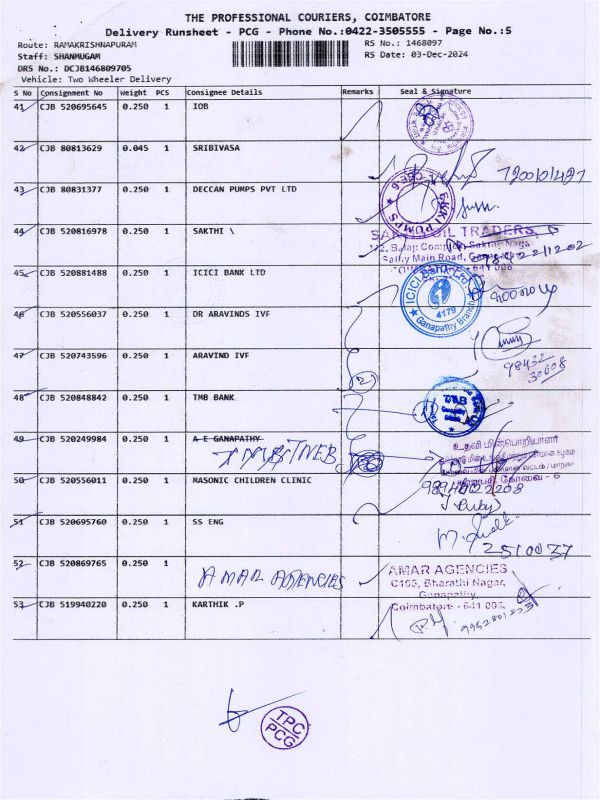 THE PROFESSIONAL COURIERS, COIMBATORE
Delivery Runsheet - PCG - Phone No.:0422-3505555 - Page No.:5
Route: RAMAKRISHNAPURAM
RS No.: 1468097
Staff: SHANMUGAM
RS Date: 03-Dec-2024
DRS No.: DCJB146809705
Vehicle: Two Wheeler Delivery
S No Consignment No Weight PCS Consignee Details Remarks Seal & Signature
41 CJB 520695645 0.250 1 IOB
42 CJB 80813629 0.045 1 SRIBIVASA
43 CJB 80831377 0.250 1 DECCAN PUMPS PVT LTD
EKKI PUMPS
44 CJB 520816978 0.250 1 SAKTHI \
OIL TRADERS,
45 CJB 520881488 0.250 1 ICICI BANK LTD
ICICI Bank Ltd
4179
Ganapathy Branch
46 CJB 520556037 0.250 1 DR ARAVINDS IVF
47 CJB 520743596 0.250 1 ARAVIND IVF
98432
30008
48 CJB 520848842 0.250 1 TMB BANK
TMB
49 CJB 520249984 0.250 1 A E GANAPATHY
TNEB
உதவி மின்பொறியாளர்
கோவை - 6
50 CJB 520556011 0.250 1 MASONIC CHILDREN CLINIC
51 CJB 520695760 0.250 1 SS ENG
2510037
52 CJB 520869765 0.250 1
AMAR AGENCIES
AMAR AGENCIES
C103, Bharathi Nagar,
Ganapathy,
Coimbatore - 641 006.
53 CJB 519940220 0.250 1 KARTHIK .P
TPC
PCG